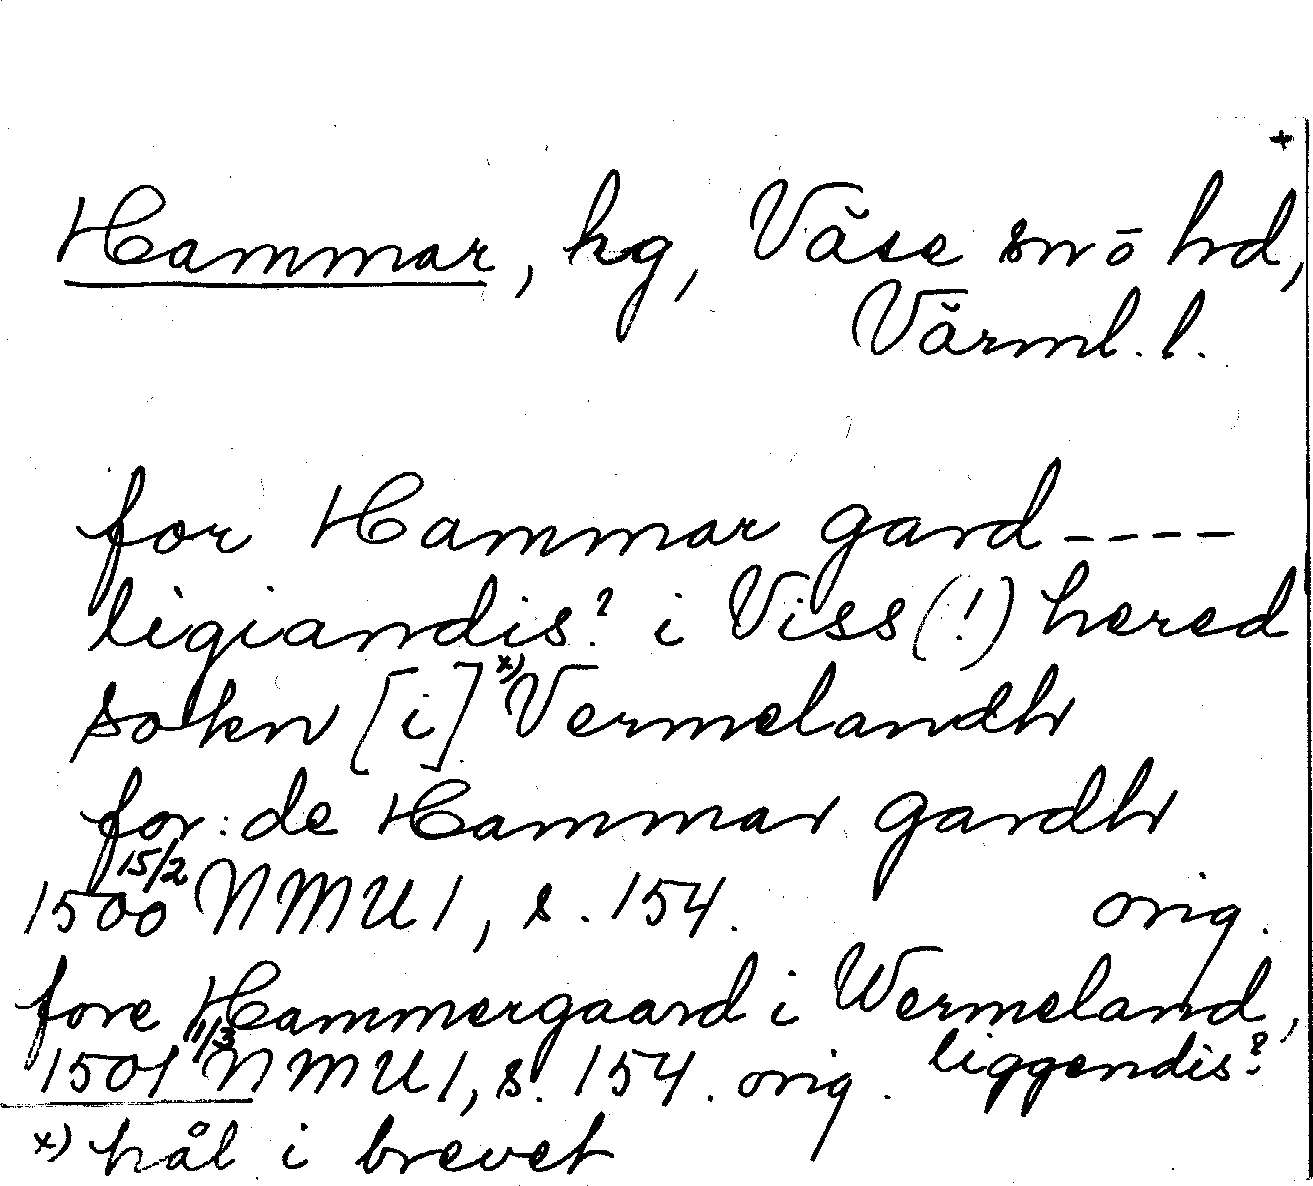 +
Hammar, hg, Väse sn o hd,
Värml. l.
for Hammar gard ----
ligiandis? i Viss(!) hered
sokn [i] x) Vermelandh
for: de Hammar gardh
1500 15/2 NMU 1, s. 154. orig.
fore Hammergaard i Wermeland,
liggendis?
1501 11/3 NMU 1, s. 154. orig.
x) hål i brevet